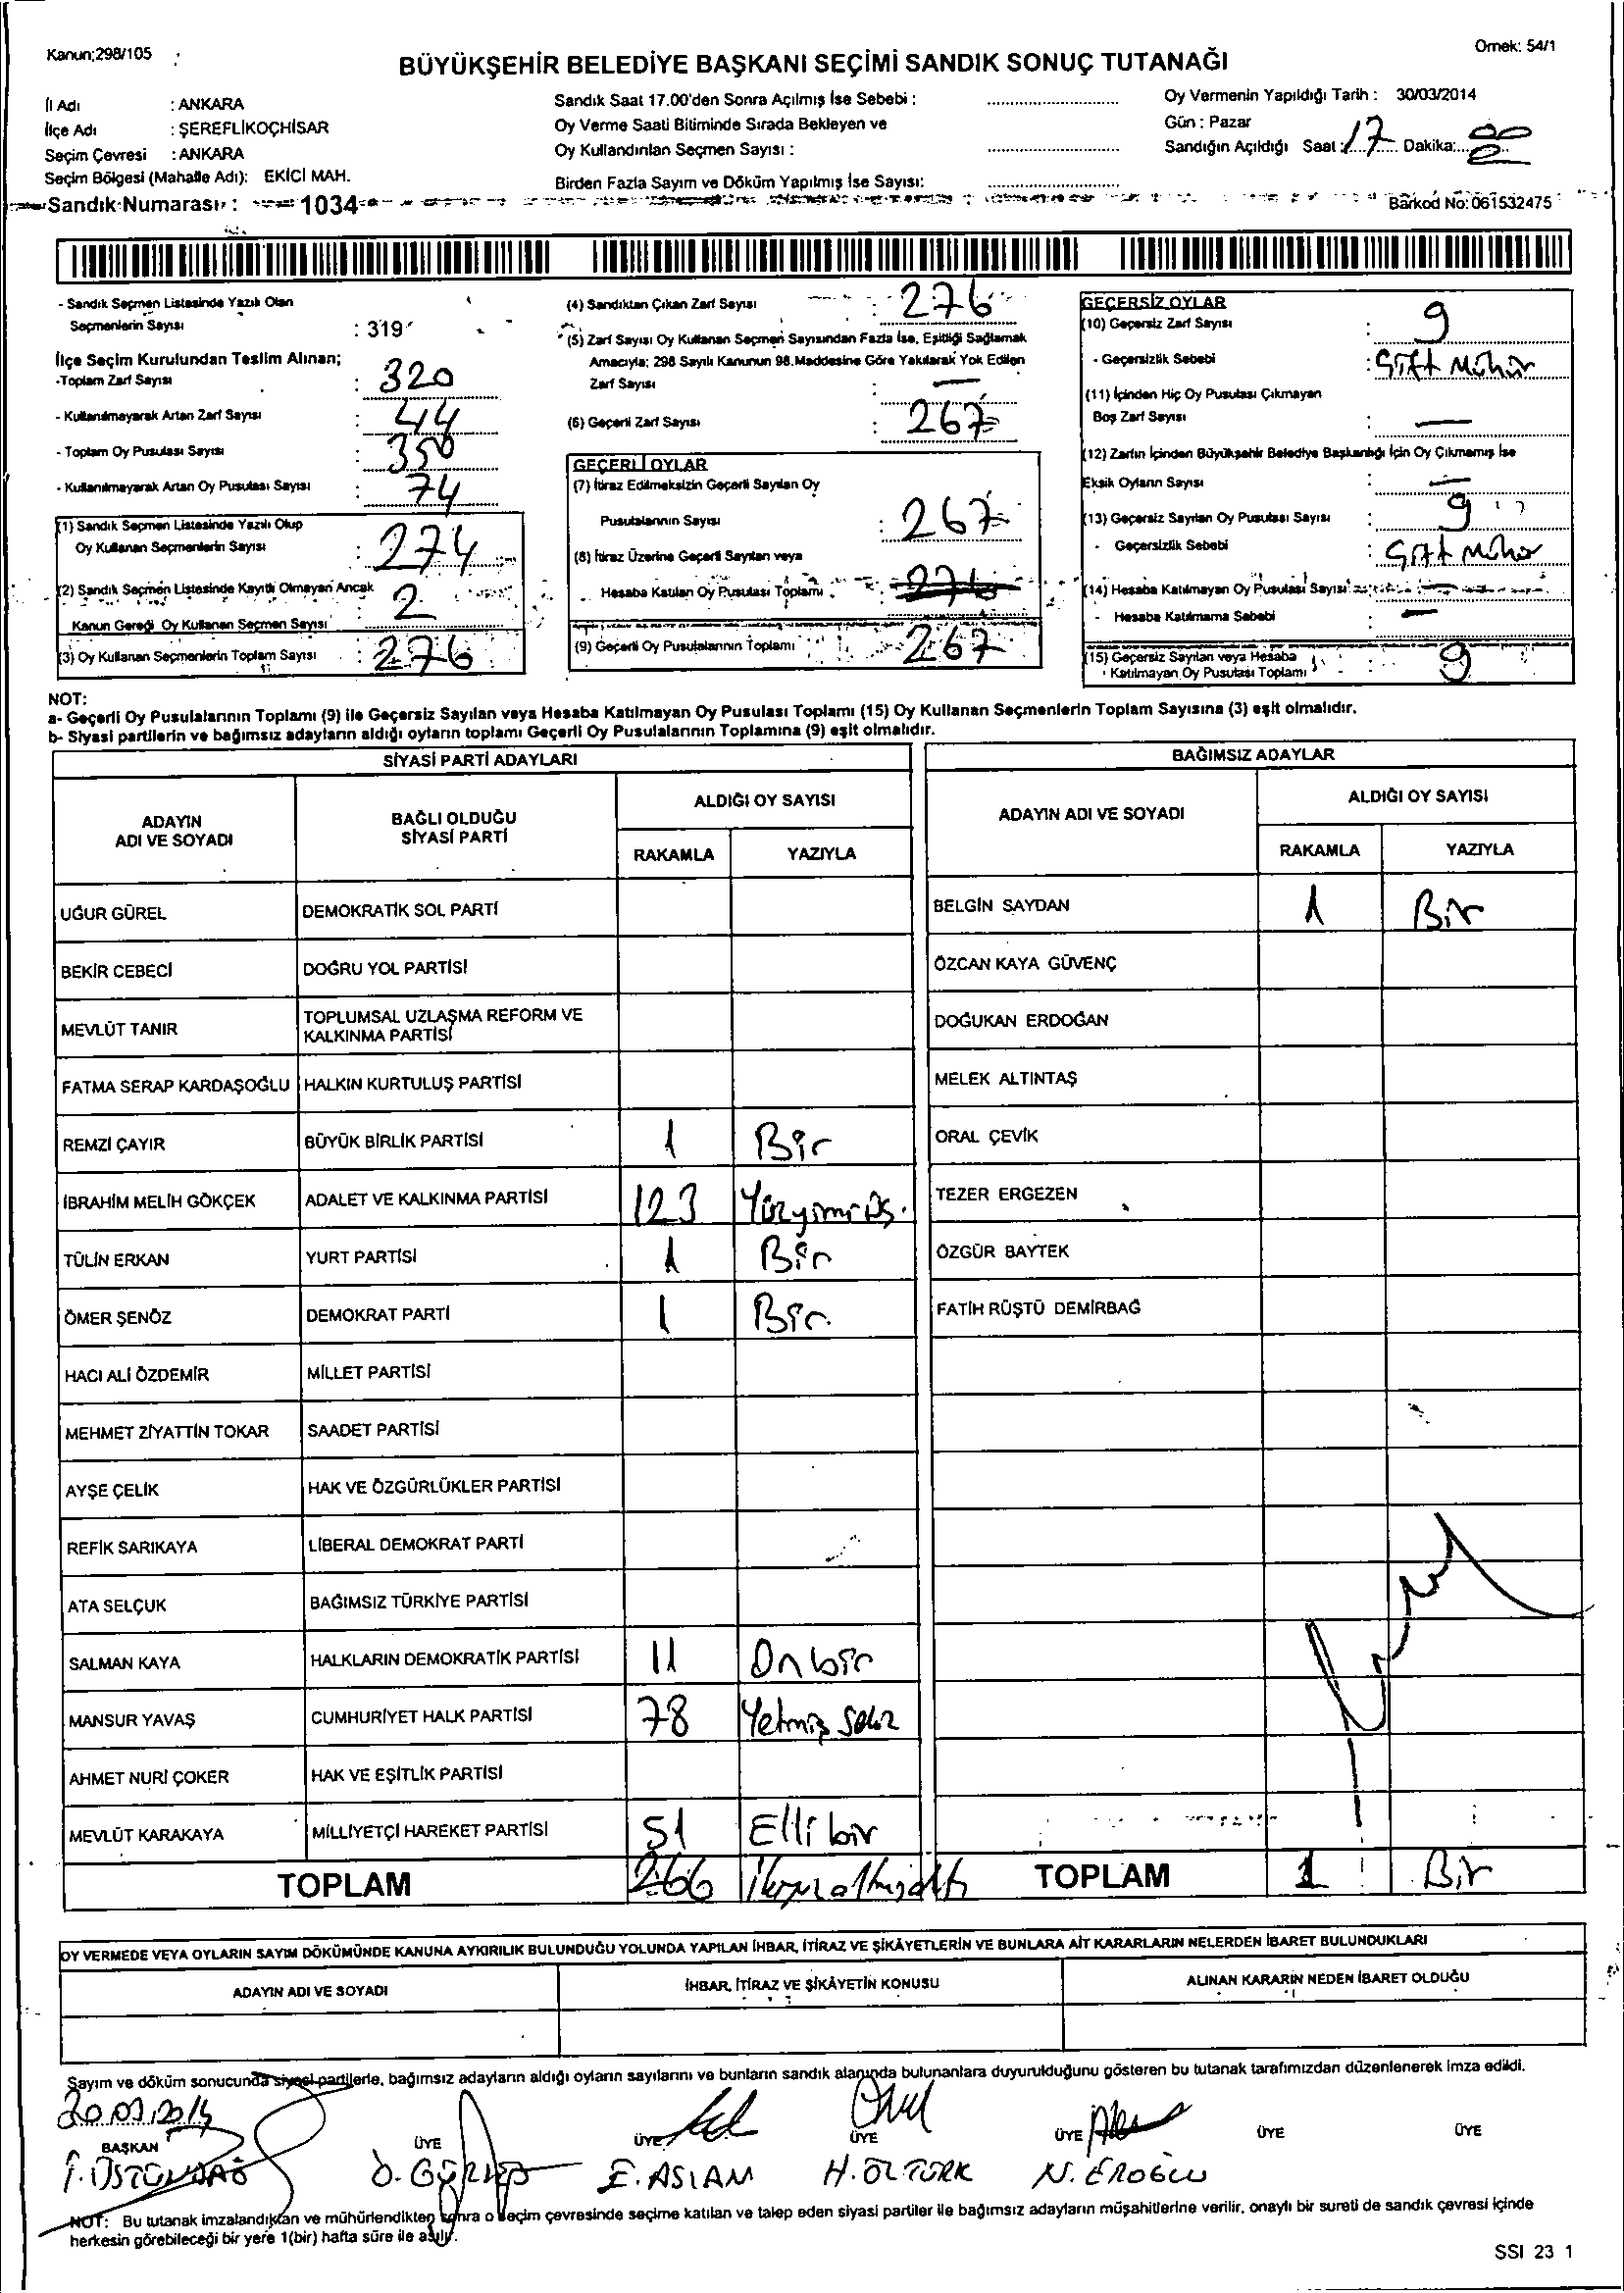 Kanun;298/105
Örnek: 54/1
BÜYÜKŞEHİR BELEDİYE BAŞKANI SEÇİMİ SANDIK SONUÇ TUTANAĞI
İl Adı : ANKARA
İlçe Adı : ŞEREFLİKOÇHİSAR
Seçim Çevresi : ANKARA
Seçim Bölgesi (Mahalle Adı): EKİCİ MAH.
Sandık Numarası : 1034
Sandık Saat 17.00'den Sonra Açılmış İse Sebebi :
Oy Verme Saati Bitiminde Sırada Bekleyen ve
Oy Kullandırılan Seçmen Sayısı :
Birden Fazla Sayım ve Döküm Yapılmış İse Sayısı:
Oy Vermenin Yapıldığı Tarih : 30/03/2014
Gün : Pazar
Sandığın Açıldığı Saat : 17 Dakika: 00
Barkod No: 061532475
- Sandık Seçmen Listesinde Yazılı Olan
Seçmenlerin Sayısı : 319
İlçe Seçim Kurulundan Teslim Alınan;
-Toplam Zarf Sayısı : 320
- Kullanılmayarak Artan Zarf Sayısı : 44
- Toplam Oy Pusulası Sayısı : 350
- Kullanılmayarak Artan Oy Pusulası Sayısı : 74
(1) Sandık Seçmen Listesinde Yazılı Olup
Oy Kullanan Seçmenlerin Sayısı : 274
(2) Sandık Seçmen Listesinde Kayıtlı Olmayan Ancak
Kanun Gereği Oy Kullanan Seçmen Sayısı : 2
(3) Oy Kullanan Seçmenlerin Toplam Sayısı : 276
(4) Sandıktan Çıkan Zarf Sayısı : 276
(5) Zarf Sayısı Oy Kullanan Seçmen Sayısından Fazla İse, Eşitliği Sağlamak
Amacıyla; 298 Sayılı Kanunun 98.Maddesine Göre Yakılarak Yok Edilen
Zarf Sayısı : —
(6) Geçerli Zarf Sayısı : 267
GEÇERLİ OYLAR
(7) İtiraz Edilmeksizin Geçerli Sayılan Oy
Pusulalarının Sayısı : 267
(8) İtiraz Üzerine Geçerli Sayılan veya
Hesaba Katılan Oy Pusulası Toplamı : 276
(9) Geçerli Oy Pusulalarının Toplamı : 267
GEÇERSİZ OYLAR
(10) Geçersiz Zarf Sayısı : 9
- Geçersizlik Sebebi : Çift Mühür
(11) İçinden Hiç Oy Pusulası Çıkmayan
Boş Zarf Sayısı : —
(12) Zarfın İçinden Büyükşehir Belediye Başkanlığı İçin Oy Çıkmamış İse
Eksik Oyların Sayısı : —
(13) Geçersiz Sayılan Oy Pusulası Sayısı : 9
- Geçersizlik Sebebi : Çift Mühür
(14) Hesaba Katılmayan Oy Pusulası Sayısı : —
- Hesaba Katılmama Sebebi : —
(15) Geçersiz Sayılan veya Hesaba
Katılmayan Oy Pusulası Toplamı : 9
NOT:
a- Geçerli Oy Pusulalarının Toplamı (9) ile Geçersiz Sayılan veya Hesaba Katılmayan Oy Pusulası Toplamı (15) Oy Kullanan Seçmenlerin Toplam Sayısına (3) eşit olmalıdır.
b- Siyasi partilerin ve bağımsız adayların aldığı oyların toplamı Geçerli Oy Pusulalarının Toplamına (9) eşit olmalıdır.
SİYASİ PARTİ ADAYLARI
ADAYIN ADI VE SOYADI
BAĞLI OLDUĞU SİYASİ PARTİ
ALDIĞI OY SAYISI
RAKAMLA YAZIYLA
UĞUR GÜREL DEMOKRATİK SOL PARTİ
BEKİR CEBECİ DOĞRU YOL PARTİSİ
MEVLÜT TANIR TOPLUMSAL UZLAŞMA REFORM VE
KALKINMA PARTİSİ
FATMA SERAP KARDAŞOĞLU HALKIN KURTULUŞ PARTİSİ
REMZİ ÇAYIR BÜYÜK BİRLİK PARTİSİ 1 Bir
İBRAHİM MELİH GÖKÇEK ADALET VE KALKINMA PARTİSİ 123 Yüzyirmi üç.
TÜLİN ERKAN YURT PARTİSİ 1 Bir
ÖMER ŞENÖZ DEMOKRAT PARTİ 1 Bir
HACI ALİ ÖZDEMİR MİLLET PARTİSİ
MEHMET ZİYATTİN TOKAR SAADET PARTİSİ
AYŞE ÇELİK HAK VE ÖZGÜRLÜKLER PARTİSİ
REFİK SARIKAYA LİBERAL DEMOKRAT PARTİ
ATA SELÇUK BAĞIMSIZ TÜRKİYE PARTİSİ
SALMAN KAYA HALKLARIN DEMOKRATİK PARTİSİ 11 On bir
MANSUR YAVAŞ CUMHURİYET HALK PARTİSİ 78 Yetmiş sekiz
AHMET NURİ ÇOKER HAK VE EŞİTLİK PARTİSİ
MEVLÜT KARAKAYA MİLLİYETÇİ HAREKET PARTİSİ 51 Elli bir
TOPLAM 266 İkiyüzaltmışaltı
BAĞIMSIZ ADAYLAR
ADAYIN ADI VE SOYADI
ALDIĞI OY SAYISI
RAKAMLA YAZIYLA
BELGİN SAYDAN 1 Bir
ÖZCAN KAYA GÜVENÇ
DOĞUKAN ERDOĞAN
MELEK ALTINTAŞ
ORAL ÇEVİK
TEZER ERGEZEN
ÖZGÜR BAYTEK
FATİH RÜŞTÜ DEMİRBAĞ
TOPLAM 1 Bir
OY VERMEDE VEYA OYLARIN SAYIM DÖKÜMÜNDE KANUNA AYKIRILIK BULUNDUĞU YOLUNDA YAPILAN İHBAR, İTİRAZ VE ŞİKÂYETLERİN VE BUNLARA AİT KARARLARIN NELERDEN İBARET BULUNDUKLARI
ADAYIN ADI VE SOYADI İHBAR, İTİRAZ VE ŞİKÂYETİN KONUSU ALINAN KARARIN NEDEN İBARET OLDUĞU
Sayım ve döküm sonucunda siyasi partilerle, bağımsız adayların aldığı oyların sayılarını ve bunların sandık alanında bulunanlara duyurulduğunu gösteren bu tutanak tarafımızdan düzenlenerek imza edildi.
30.03.2014
BAŞKAN ÜYE ÜYE ÜYE ÜYE ÜYE ÜYE
İ. ÜSTÜNDAĞ E. ASLAN H. ÖZTÜRK N. EROĞLU
NOT: Bu tutanak imzalandıktan ve mühürlendikten sonra o seçim çevresinde seçime katılan ve talep eden siyasi partiler ile bağımsız adayların müşahitlerine verilir, onaylı bir sureti de sandık çevresi içinde
herkesin görebileceği bir yere 1(bir) hafta süre ile asılır.
SSI 23 1